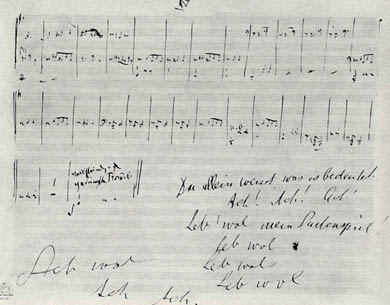 Du allein weisst was es bedeutet.
Ach! Ach! Ach!
Leb' wol mein Saitenspiel!
Leb wol
Leb wol
Leb wol
Leb wol
Ach Ach